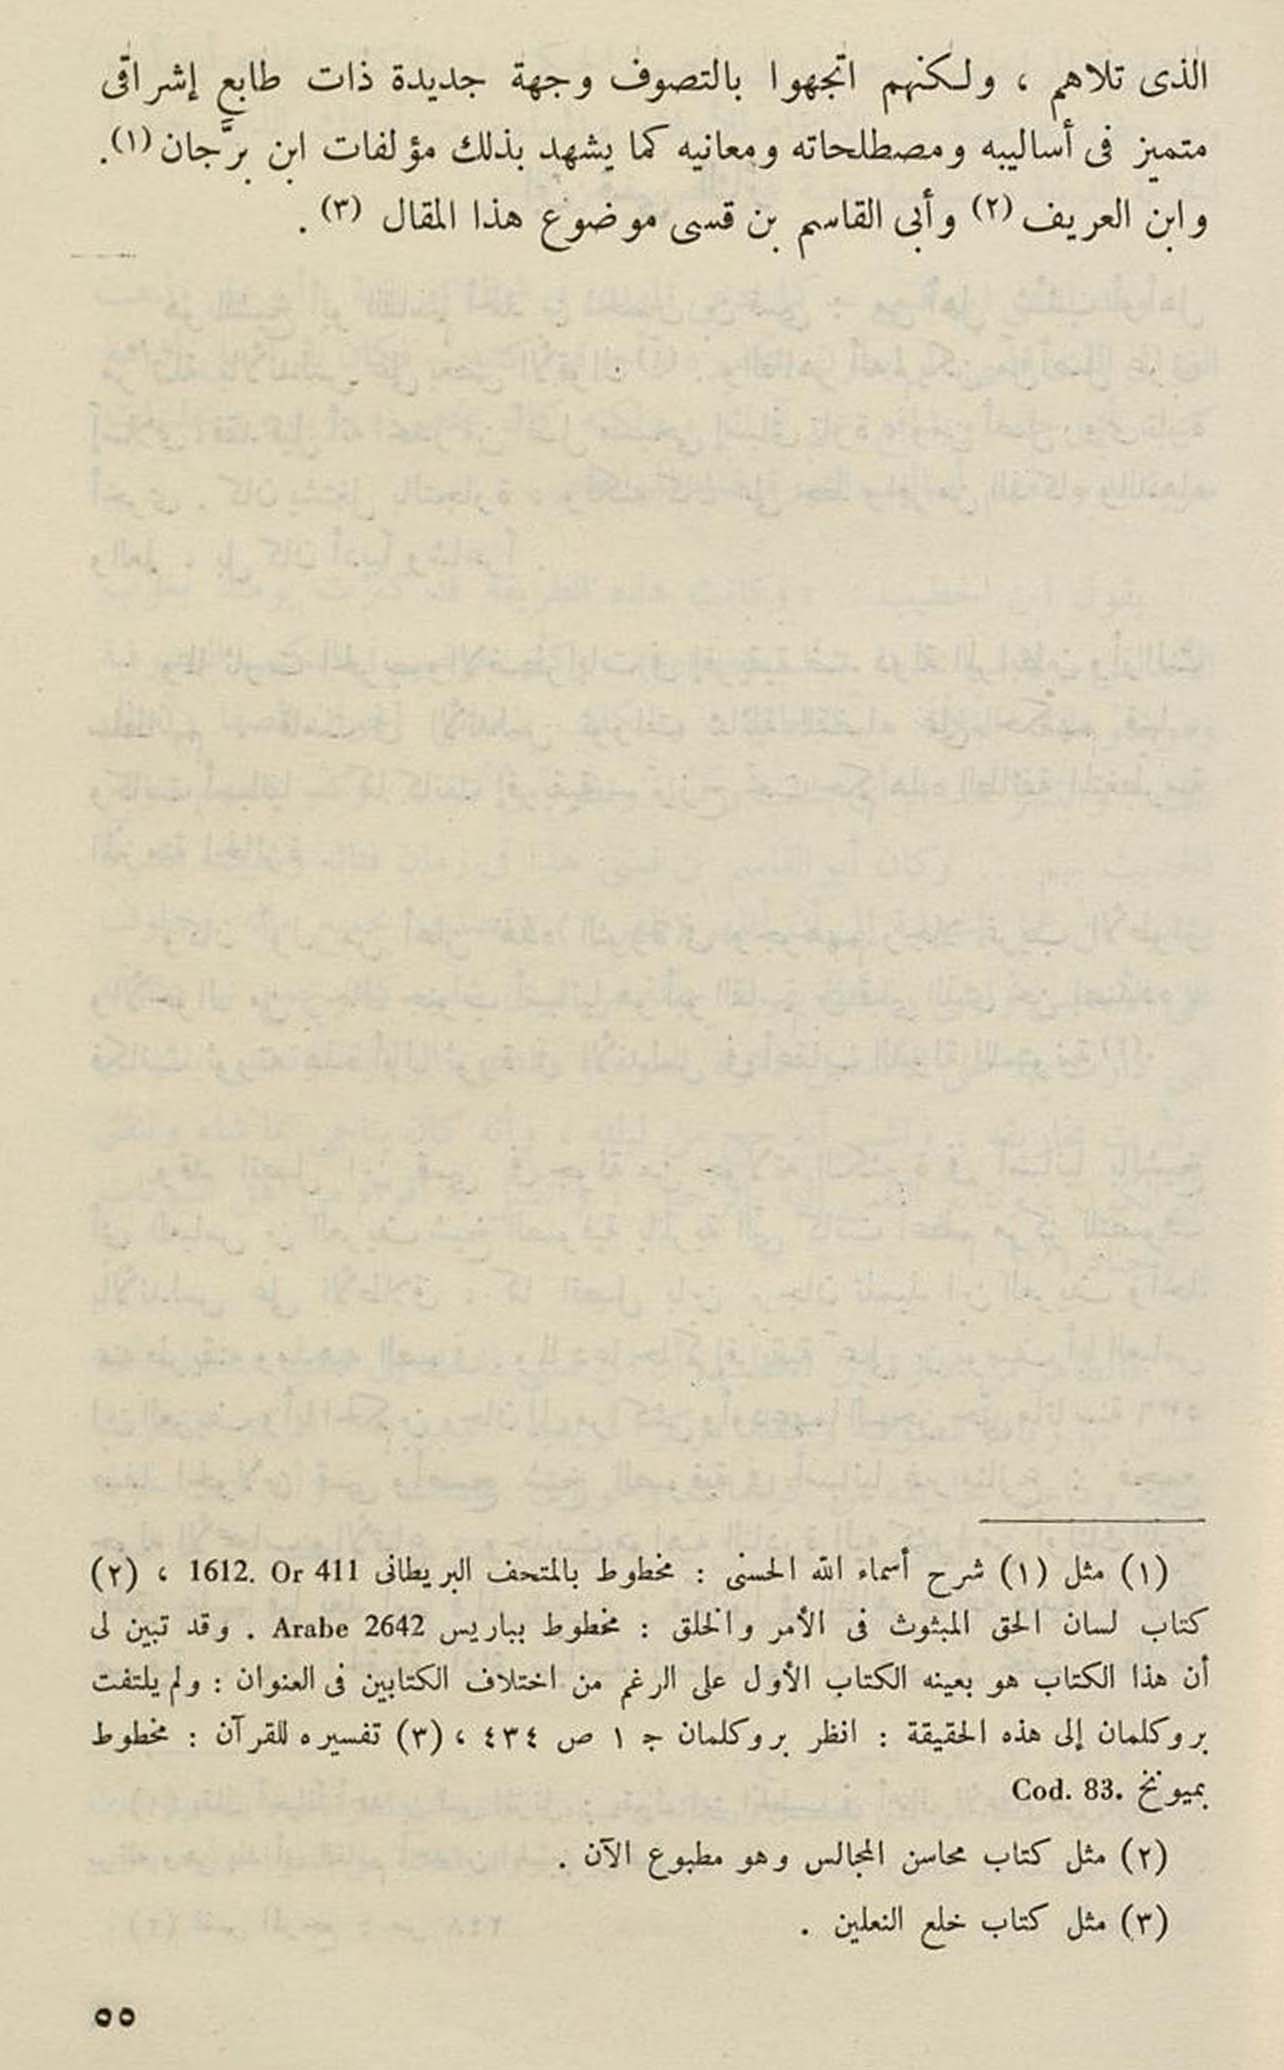 الذى تلاهم ، ولكنهم اتجهوا بالتصوف وجهة جديدة ذات طابع إشراقى
متميز فى أساليبه ومصطلحاته ومعانيه كما يشهد بذلك مؤلفات ابن برَّجان (١).
وابن العريف (٢) وأبى القاسم بن قسى موضوع هذا المقال (٣) .
(١) مثل (١) شرح أسماء الله الحسنى : مخطوط بالمتحف البريطانى 1612. Or 411 ، (٢)
كتاب لسان الحق المبثوث فى الأمر والخلق : مخطوط بباريس Arabe 2642 . وقد تبين لى
أن هذا الكتاب هو بعينه الكتاب الأول على الرغم من اختلاف الكتابين فى العنوان : ولم يلتفت
بروكلمان إلى هذه الحقيقة : انظر بروكلمان ج ١ ص ٤٣٤ ، (٣) تفسيره للقرآن : مخطوط
بميونخ Cod. 83.
(٢) مثل كتاب محاسن المجالس وهو مطبوع الآن .
(٣) مثل كتاب خلع النعلين .
٥٥